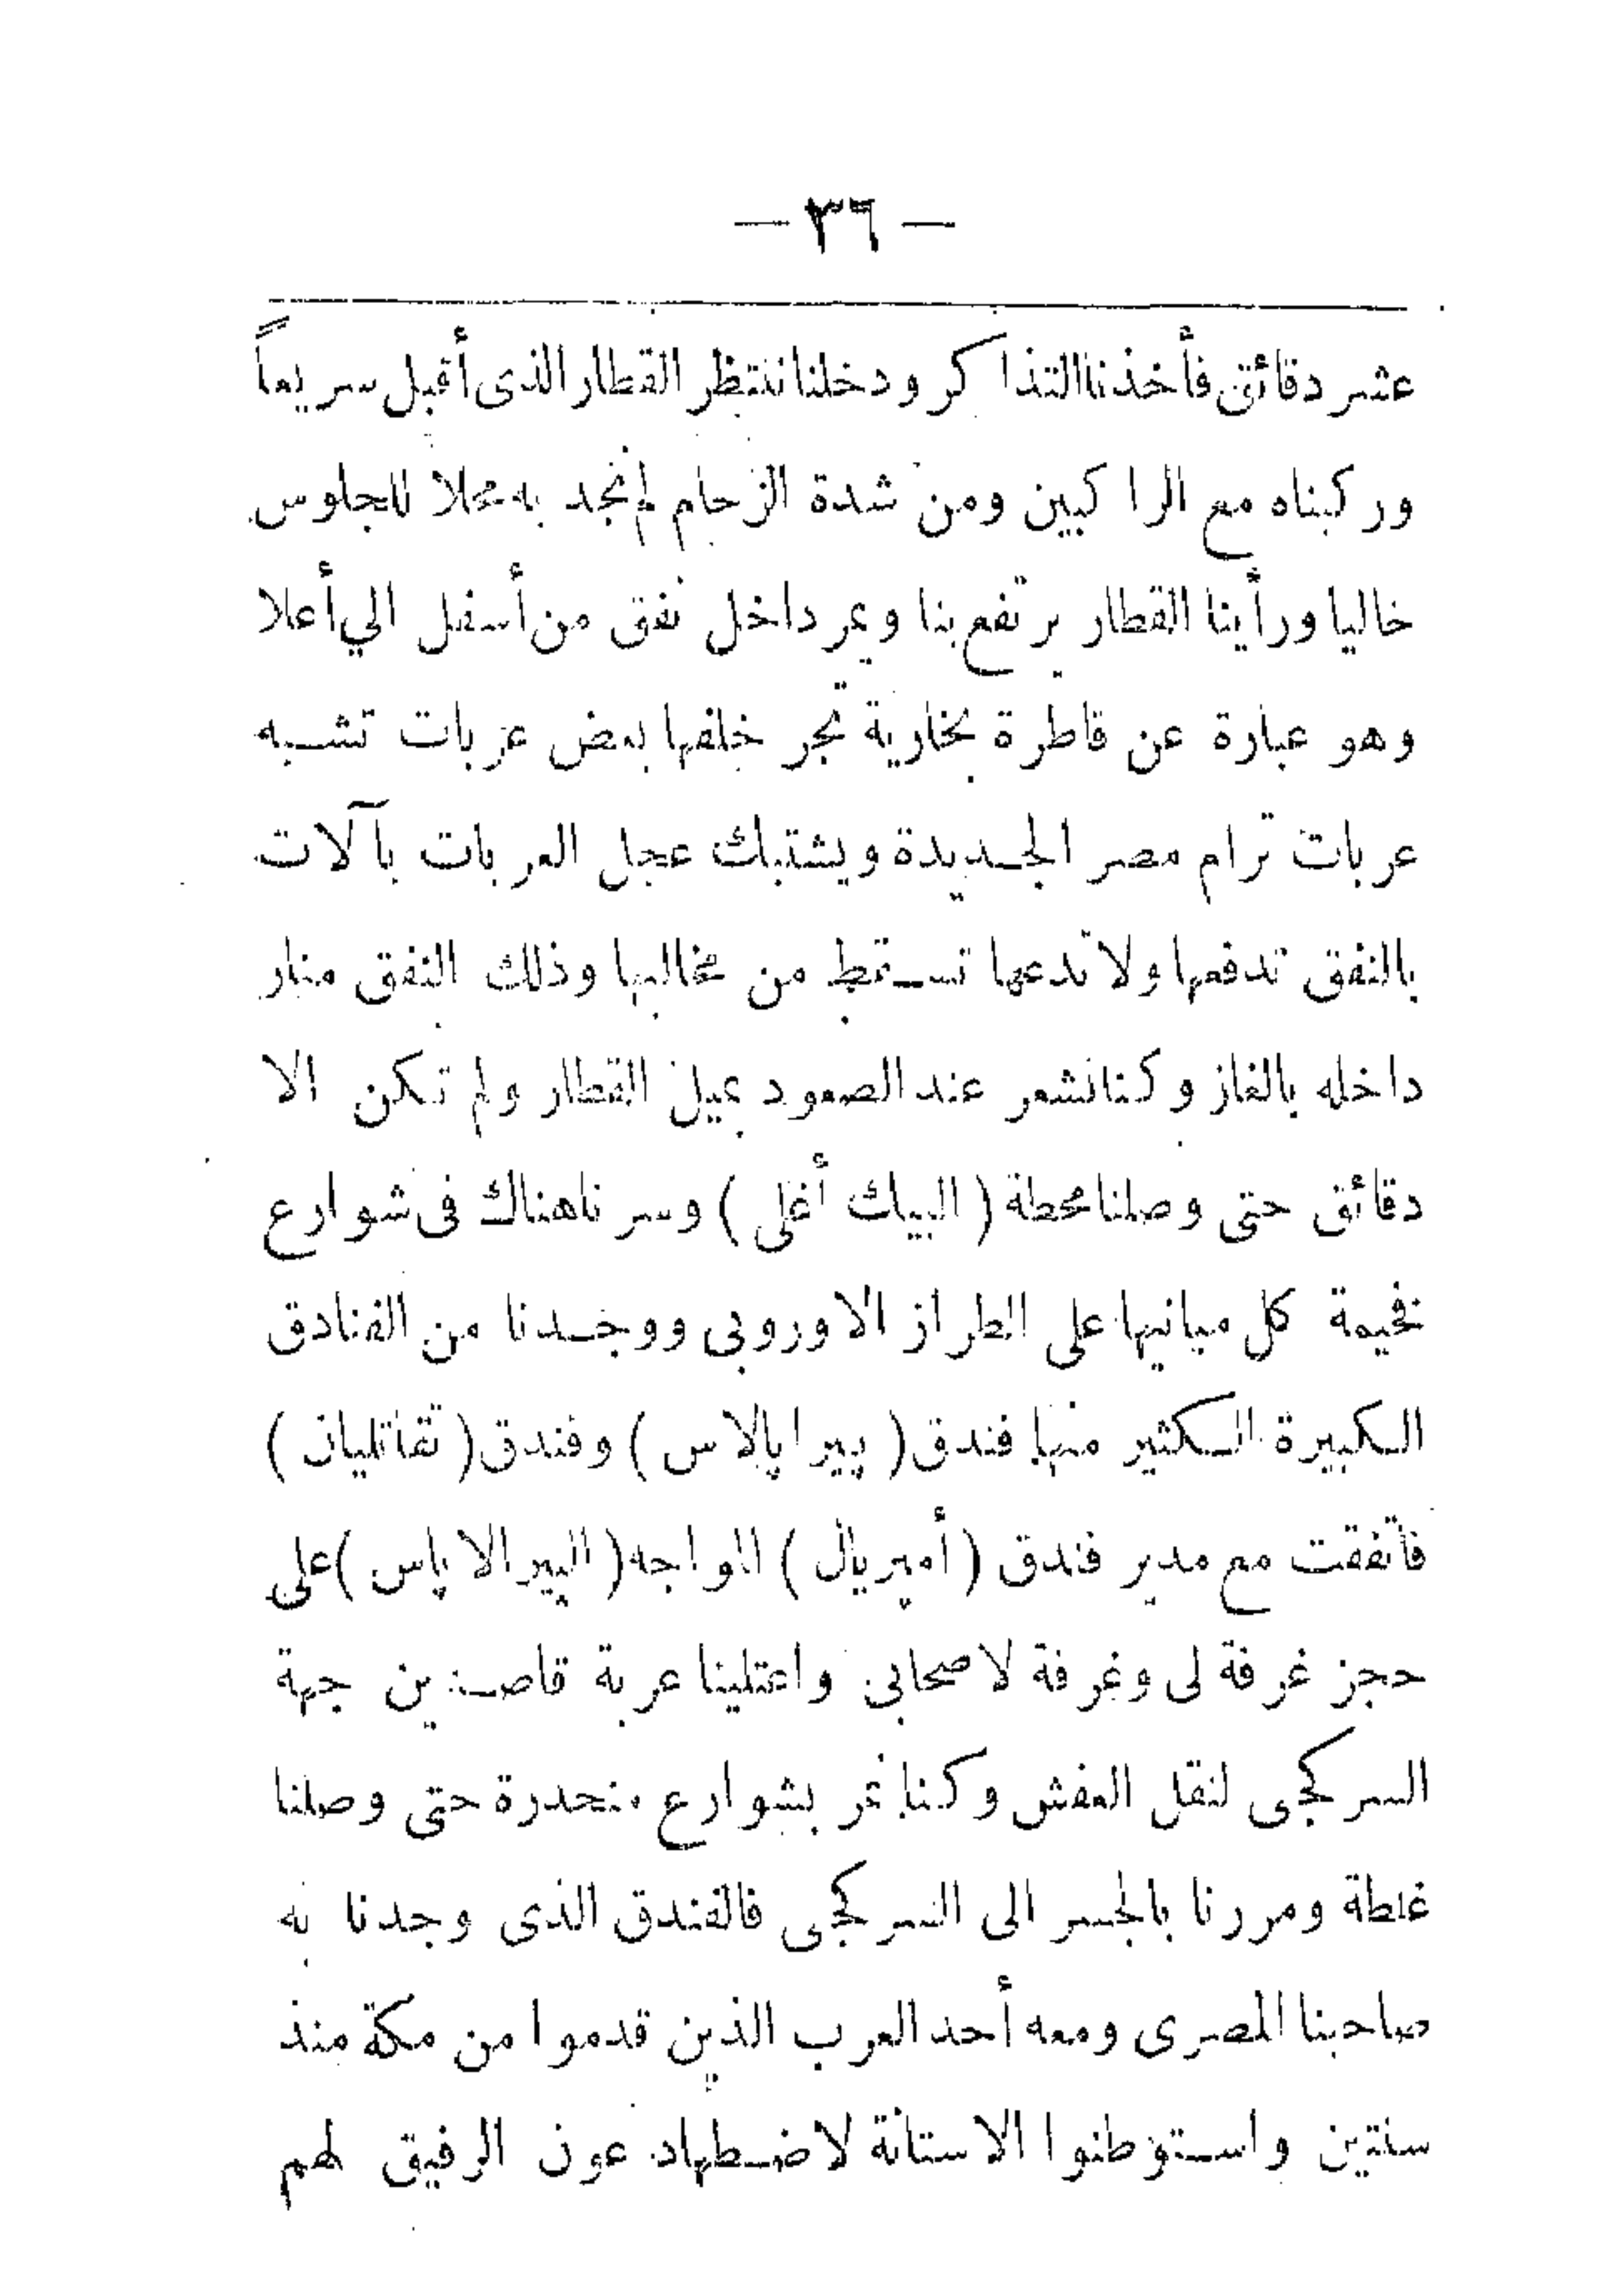 — ٣٦ —
عشر دقائق فأخذنا التذاكر ودخلنا ننتظر القطار الذى أقبل سريعاً
وركبناه مع الراكبين ومن شدة الزحام لم نجد به محلا للجلوس
خاليا ورأينا القطار يرتفع بنا ويمر داخل نفق من أسفل الي أعلا
وهو عبارة عن قاطرة بخارية تجر خلفها بعض عربات تشبه
عربات ترام مصر الجديدة ويشتبك عجل العربات بآلات
بالنفق تدفعها ولا تدعها تسقط من مخالبها وذلك النفق منار
داخله بالغاز وكنا نشعر عند الصعود بميل القطار ولم تكن الا
دقائق حتى وصلنا محطة ( البيك أغلى ) وسرنا هناك فى شوارع
فخيمة كل مبانيها على الطراز الاوروبى ووجدنا من الفنادق
الكبيرة الكثير منها فندق ( پيرا پالاس ) وفندق ( تقاتليان )
فاتفقت مع مدير فندق ( أمپريال ) المواجه ( البيرالا پاس ) على
حجز غرفة لى وغرفة لاصحابى واعتلينا عربة قاصدين جهة
السركجى لنقل العفش وكنا نمر بشوارع منحدرة حتى وصلنا
غلطة ومررنا بالجسر الى السركجى فالفندق الذى وجدنا به
صاحبنا المصرى ومعه أحد العرب الذين قدموا من مكة منذ
سنتين واستوطنوا الاستانة لاضطهاد عون الرفيق لهم